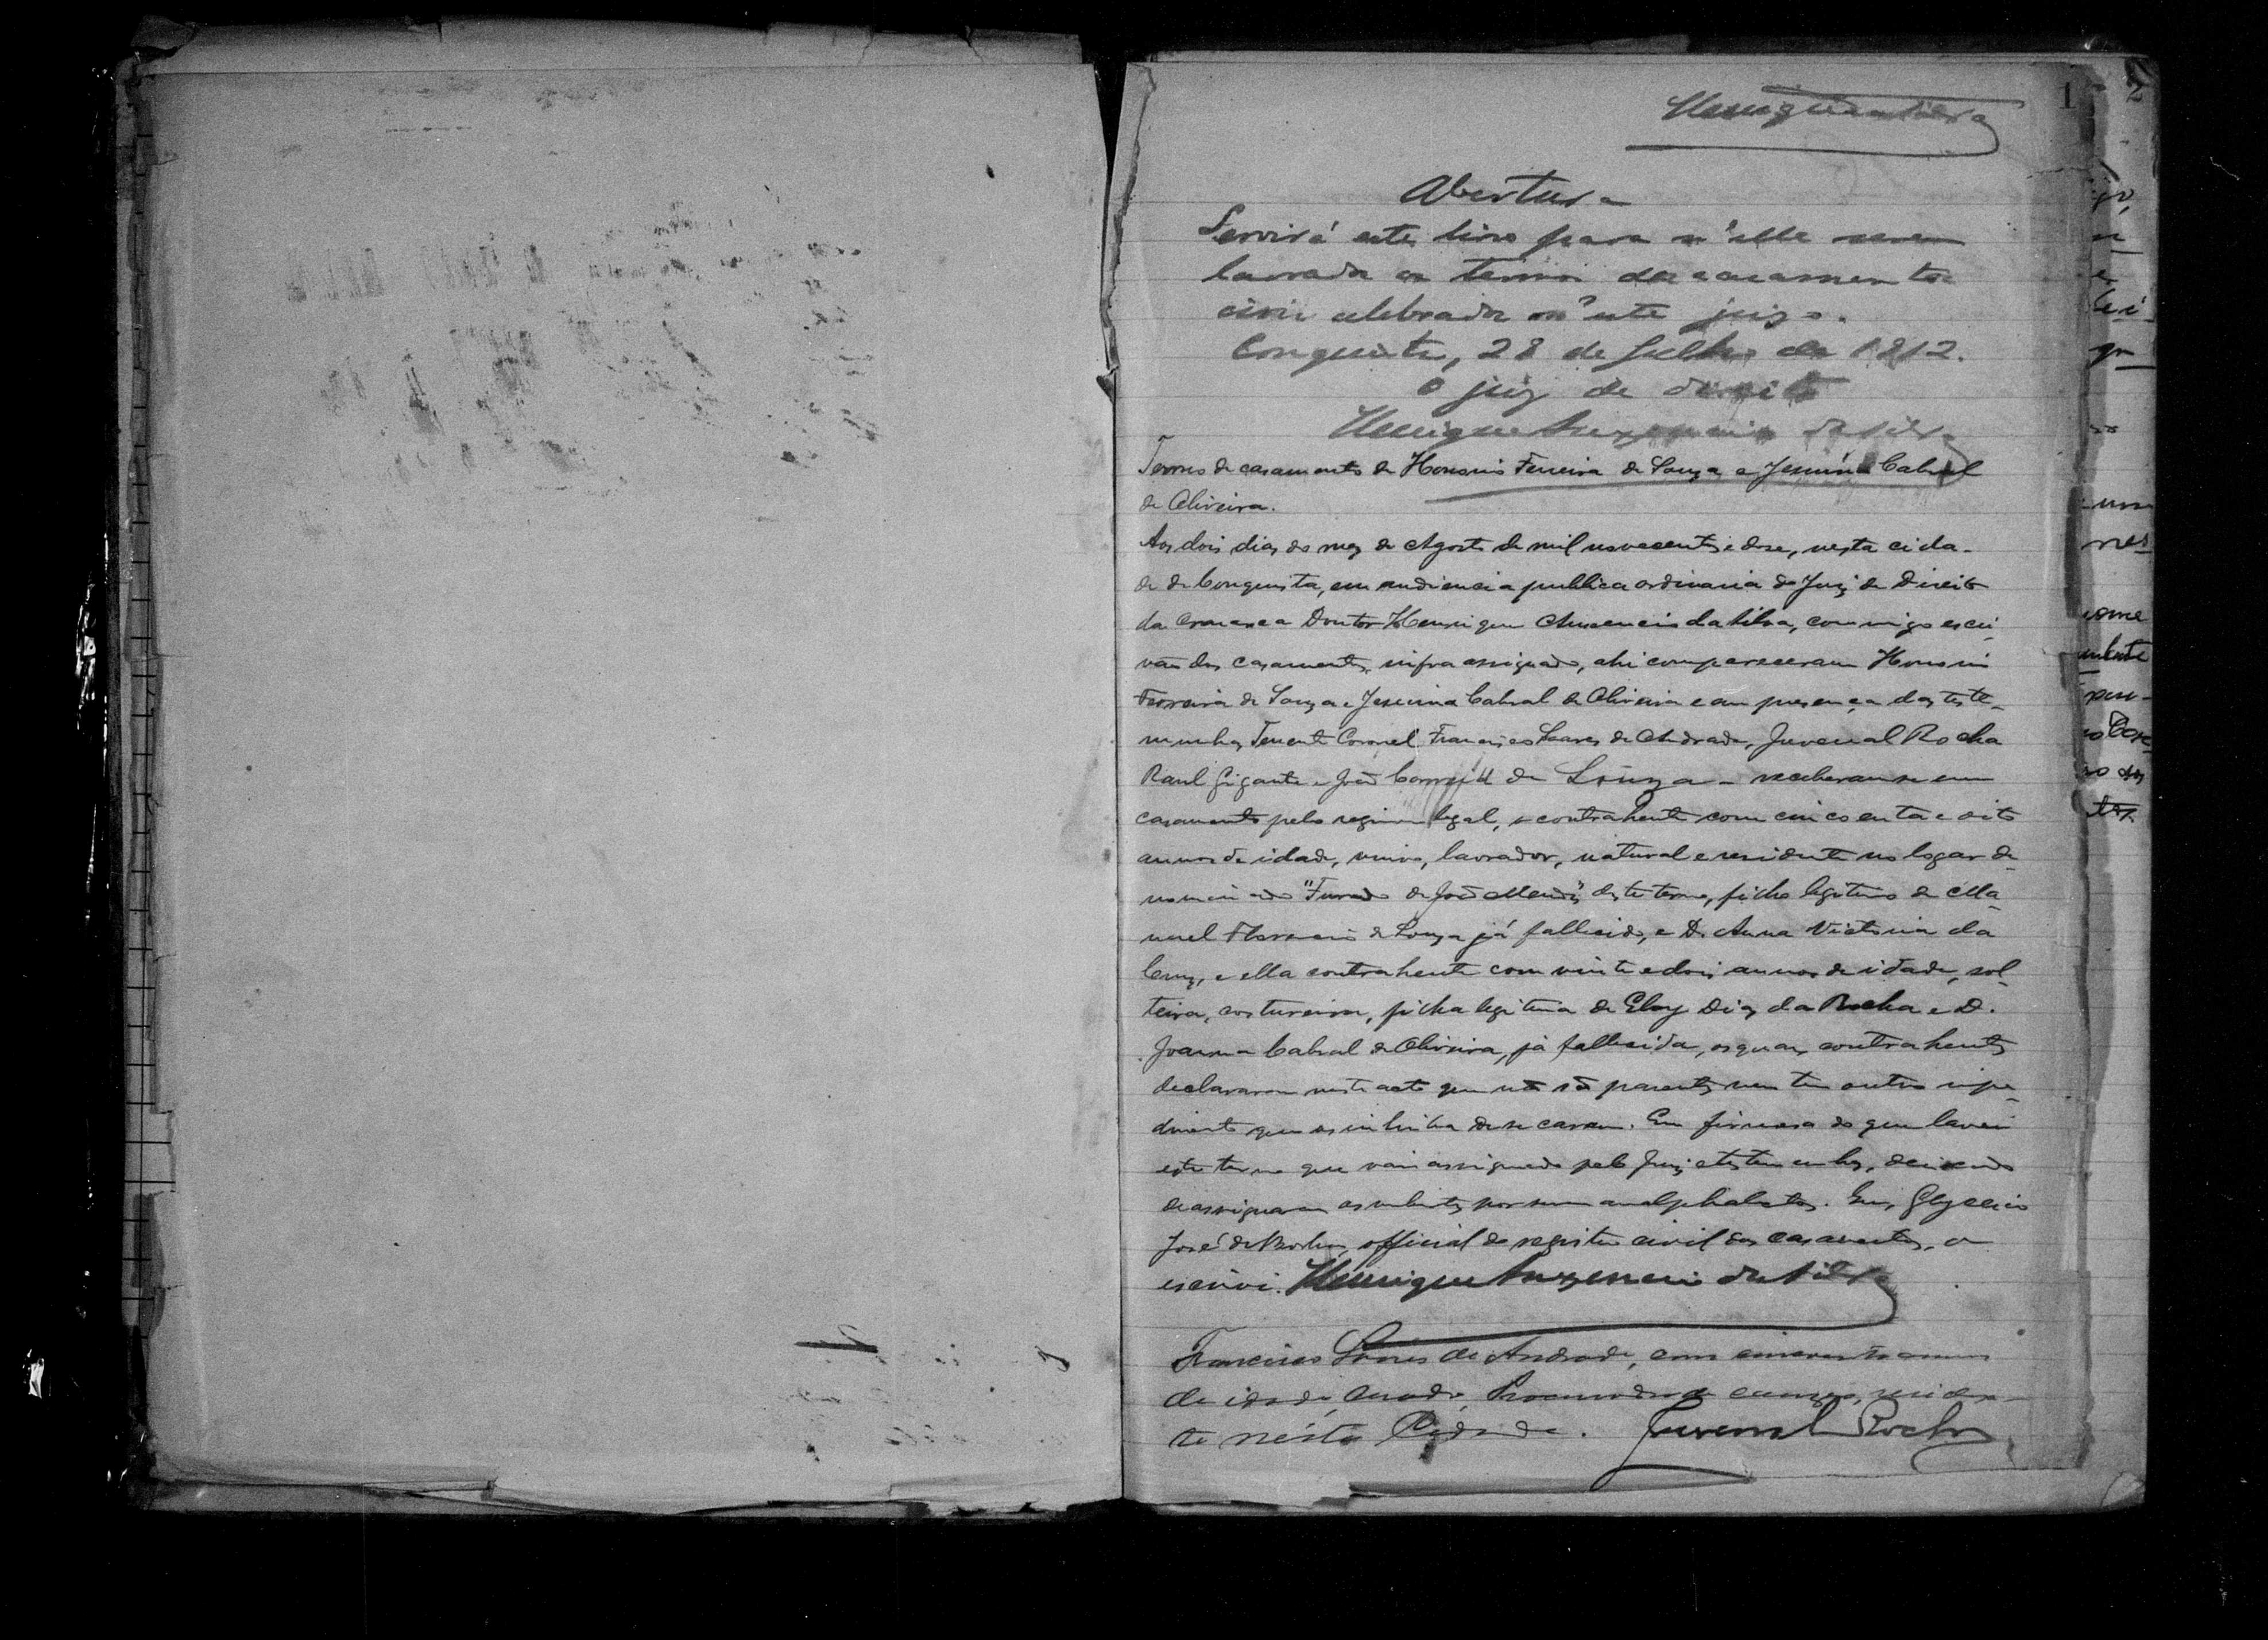 1
2
Henrique da Silva
Abertura
Servirá este livro para n'elle serem
lavrados os termos dos casamentos
civis celebrados n'este juizo.
Conquista, 28 de Julho de 1912.
O juiz de direito
Henrique da Silva
Termo de casamento de Honorio Ferreira de Souza e Jesuina Cabral
de Oliveira.
Aos dois dias do mez de Agosto de mil novecentos e dose, nesta cida-
de de Conquista, em audiencia publica ordinaria do Juiz de Direito
da Comarca Doutor Henrique da Silva, commigo escri-
vão dos casamentos, infra assignado, ahi compareceram Honorio
Ferreira de Souza e Jesuina Cabral de Oliveira e em presença das teste-
munhas Tenente Coronel Francisco Soares de Andrade, Juvenal Rocha
Raul Gigante e João de Souza - receberam-se em
casamento pelo regimen legal, o contrahente com cincoenta e oito
annos de idade, viuvo, lavrador, natural e residente no logar de
nominado "Furado de João Mendes" deste termo, filho legitimo de Ma-
nuel de Souza já fallecido, e D. Anna Victoria da
Cruz, e ella contrahente com vinte e dois annos de idade, sol-
teira, costureira, filha legitima de Eloy Dias da Rocha e D.
Joanna Cabral de Oliveira, já fallecida, os quaes contrahentes
declararam neste acto que não são parentes nem tem outro impe-
dimento que os inhiba de se casarem. Em firmesa do que lavrei
este termo que vai assignado pelo Juiz e testemunhas, deixando
de assignarem os nubentes por serem analphabetos. Eu, Glycerio
José de official do registro civil dos casamentos, o
escrevi. Henrique da Silva
Francisco Soares de Andrade, com cincoenta annos
de idade, casado, residen-
te nésta Cidade. Juvenal Rocha